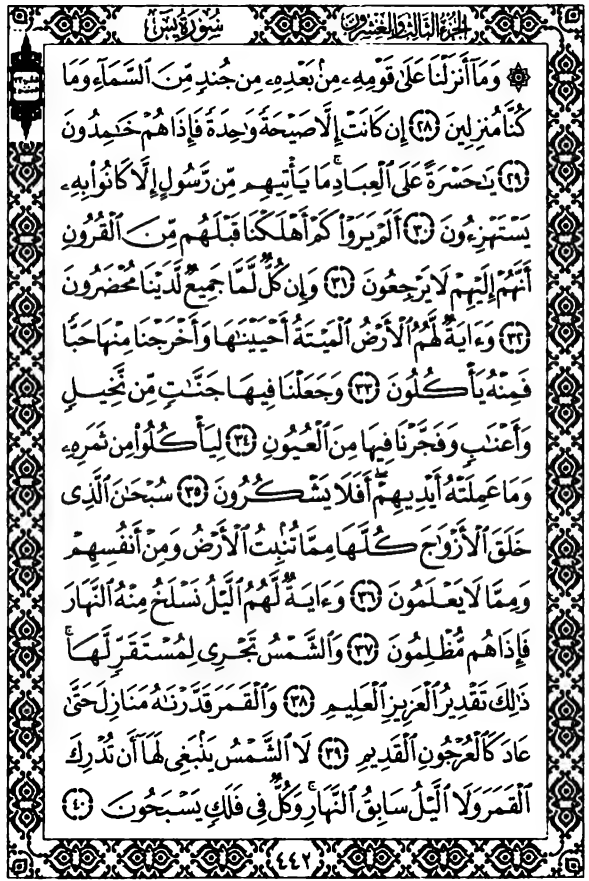 سُورَةُ يسٓ
الجُزْءُ الثَّالِثُ وَالعِشْرُونَ
۞ وَمَآ أَنزَلْنَا عَلَىٰ قَوْمِهِۦ مِنۢ بَعْدِهِۦ مِن جُندٍ مِّنَ ٱلسَّمَآءِ وَمَا
كُنَّا مُنزِلِينَ ٢٨ إِن كَانَتْ إِلَّا صَيْحَةً وَٰحِدَةً فَإِذَا هُمْ خَٰمِدُونَ
٢٩ يَٰحَسْرَةً عَلَى ٱلْعِبَادِ ۚ مَا يَأْتِيهِم مِّن رَّسُولٍ إِلَّا كَانُوا۟ بِهِۦ
يَسْتَهْزِءُونَ ٣٠ أَلَمْ يَرَوْا۟ كَمْ أَهْلَكْنَا قَبْلَهُم مِّنَ ٱلْقُرُونِ
أَنَّهُمْ إِلَيْهِمْ لَا يَرْجِعُونَ ٣١ وَإِن كُلٌّ لَّمَّا جَمِيعٌ لَّدَيْنَا مُحْضَرُونَ
٣٢ وَءَايَةٌ لَّهُمُ ٱلْأَرْضُ ٱلْمَيْتَةُ أَحْيَيْنَٰهَا وَأَخْرَجْنَا مِنْهَا حَبًّا
فَمِنْهُ يَأْكُلُونَ ٣٣ وَجَعَلْنَا فِيهَا جَنَّٰتٍ مِّن نَّخِيلٍ
وَأَعْنَٰبٍ وَفَجَّرْنَا فِيهَا مِنَ ٱلْعُيُونِ ٣٤ لِيَأْكُلُوا۟ مِن ثَمَرِهِۦ
وَمَا عَمِلَتْهُ أَيْدِيهِمْ ۖ أَفَلَا يَشْكُرُونَ ٣٥ سُبْحَٰنَ ٱلَّذِى
خَلَقَ ٱلْأَزْوَٰجَ كُلَّهَا مِمَّا تُنۢبِتُ ٱلْأَرْضُ وَمِنْ أَنفُسِهِمْ
وَمِمَّا لَا يَعْلَمُونَ ٣٦ وَءَايَةٌ لَّهُمُ ٱلَّيْلُ نَسْلَخُ مِنْهُ ٱلنَّهَارَ
فَإِذَا هُم مُّظْلِمُونَ ٣٧ وَٱلشَّمْسُ تَجْرِى لِمُسْتَقَرٍّ لَّهَا ۚ
ذَٰلِكَ تَقْدِيرُ ٱلْعَزِيزِ ٱلْعَلِيمِ ٣٨ وَٱلْقَمَرَ قَدَّرْنَٰهُ مَنَازِلَ حَتَّىٰ
عَادَ كَٱلْعُرْجُونِ ٱلْقَدِيمِ ٣٩ لَا ٱلشَّمْسُ يَنۢبَغِى لَهَآ أَن تُدْرِكَ
ٱلْقَمَرَ وَلَا ٱلَّيْلُ سَابِقُ ٱلنَّهَارِ ۚ وَكُلٌّ فِى فَلَكٍ يَسْبَحُونَ ٤٠
٤٤٢